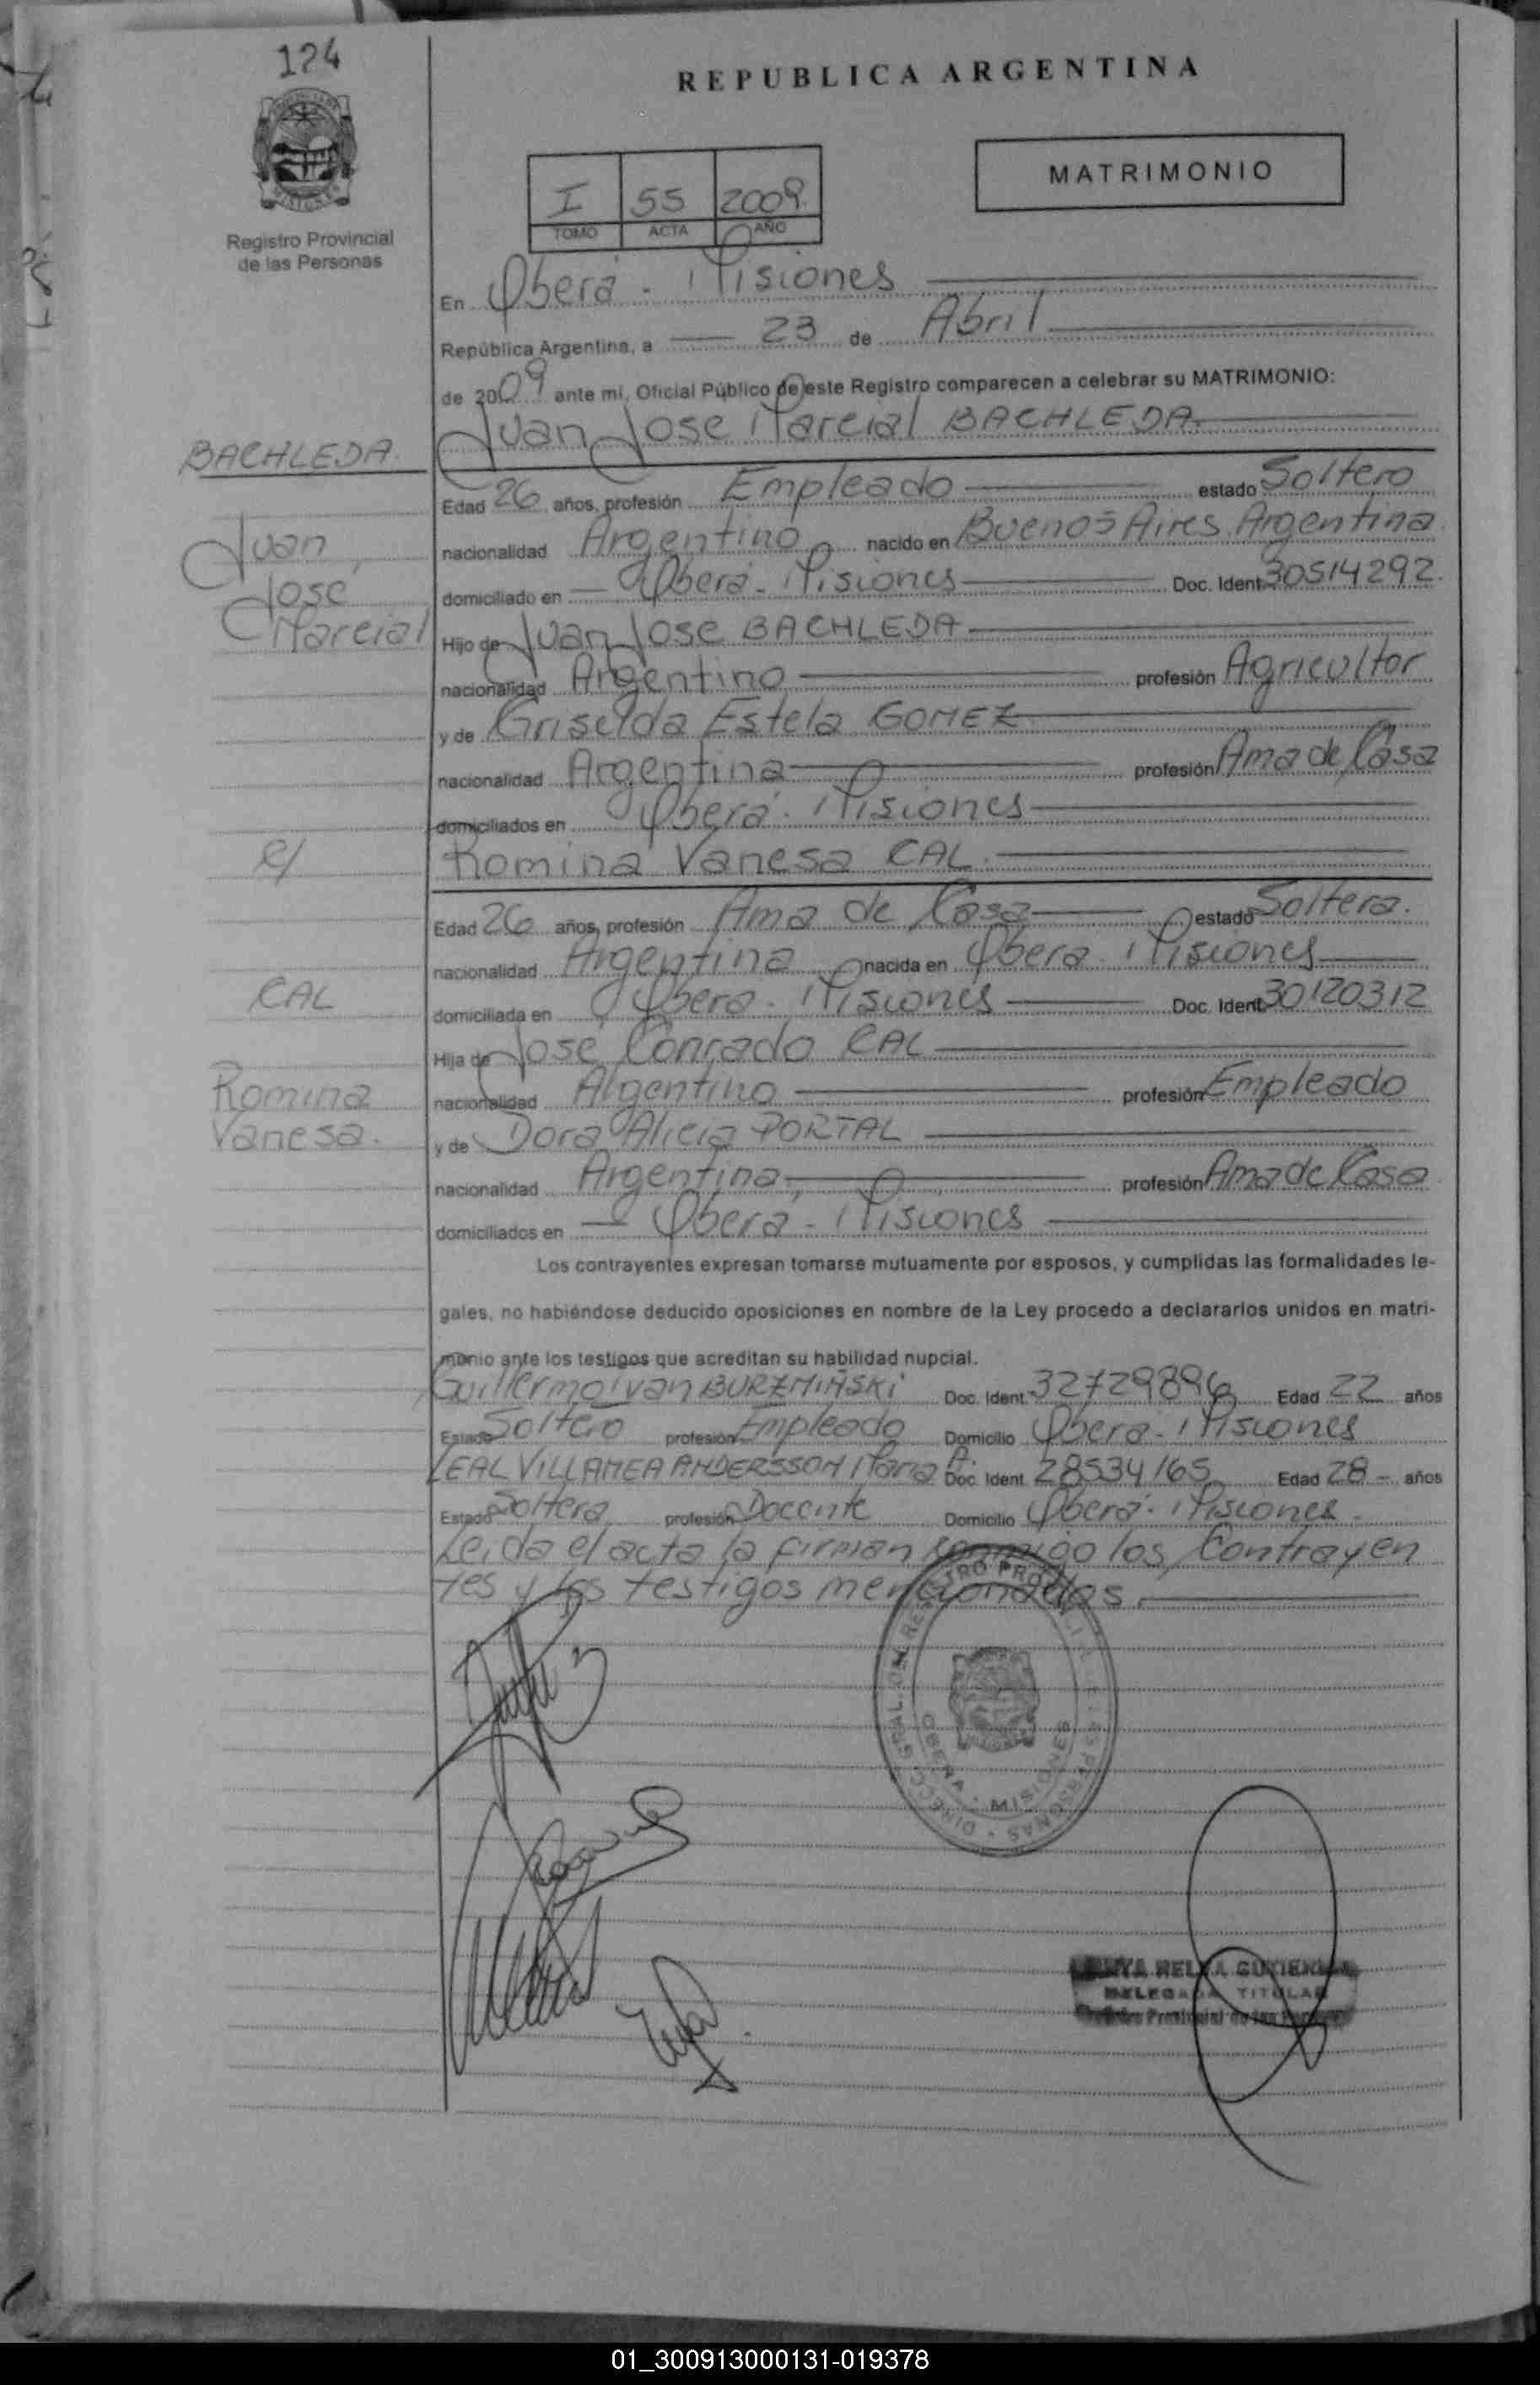 124
REPUBLICA ARGENTINA
MATRIMONIO
I 55 2009
TOMO ACTA AÑO
Registro Provincial
de las Personas
En Oberá - Misiones
República Argentina, a 23 de Abril
de 2009 ante mi, Oficial Público de este Registro comparecen a celebrar su MATRIMONIO:
Juan Jose Marcial BACHLEDA
BACHLEDA
Edad 26 años, profesión Empleado estado Soltero
Juan
nacionalidad Argentino nacido en Buenos Aires Argentina
Jose
domiciliado en Oberá - Misiones Doc. Ident. 30514292
Marcial
Hijo de Juan Jose BACHLEDA
nacionalidad Argentino profesión Agricultor
y de Griselda Estela GOMEZ
nacionalidad Argentina profesión Ama de Casa
domiciliados en Oberá - Misiones
c/
Romina Vanesa CAL
Edad 26 años, profesión Ama de Casa estado Soltera
nacionalidad Argentina nacida en Oberá Misiones
CAL
domiciliada en Oberá - Misiones Doc. Ident. 30120312
Hija de José Conrado CAL
Romina
nacionalidad Argentino profesión Empleado
Vanesa.
y de Dora Alicia PORTAL
nacionalidad Argentina profesión Ama de Casa
domiciliados en Oberá - Misiones
Los contrayentes expresan tomarse mutuamente por esposos, y cumplidas las formalidades le-
gales, no habiéndose deducido oposiciones en nombre de la Ley procedo a declararlos unidos en matri-
monio ante los testigos que acreditan su habilidad nupcial.
Guillermo Ivan BURZMIÑSKI Doc. Ident. 32729896 Edad 22 años
Estado Soltero profesión Empleado Domicilio Oberá - Misiones
LEAL VILLAMEA ANDERSSON Maria A. Doc. Ident. 28534165 Edad 28 años
Estado Soltera profesión Docente Domicilio Oberá - Misiones
Leida el acta la firman conmigo los Contrayen
tes y los testigos mencionados.
DIRECC. GRAL. DEL REGISTRO PROVINCIAL DE LAS PERSONAS
OBERA - MISIONES
DELEGADA TITULAR
Registro Provincial de las Personas
01_300913000131-019378